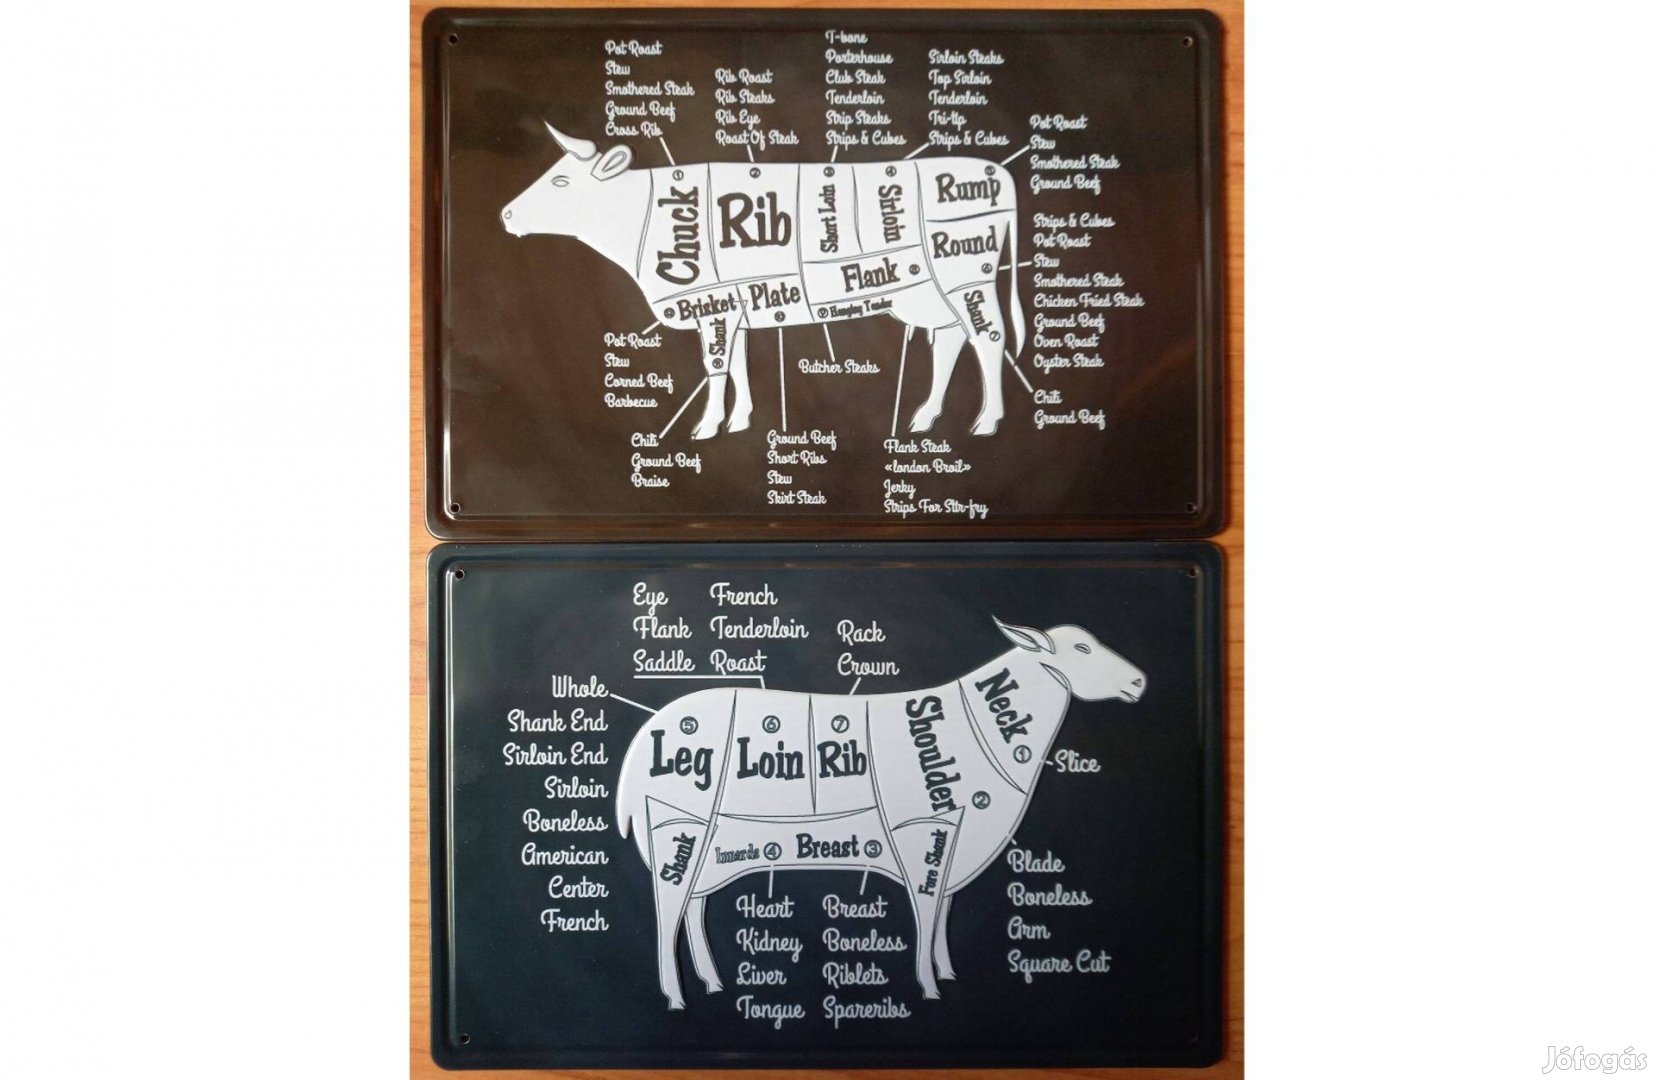 Pot Roast
Stew
Smothered Steak
Ground Beef
Cross Rib
Rib Roast
Rib Steaks
Rib Eye
Roast Of Steak
T-bone
Porterhouse
Club Steak
Tenderloin
Strip Steaks
Strips & Cubes
Sirloin Steaks
Top Sirloin
Tenderloin
Tri-tip
Strips & Cubes
Pot Roast
Stew
Smothered Steak
Ground Beef
Chuck 1
Rib 2
Short Loin 3
Sirloin 4
Rump
Round
Flank
Brisket
Plate
Hanging Tender
Shank
Shank
Strips & Cubes
Pot Roast
Stew
Smothered Steak
Chicken Fried Steak
Ground Beef
Oven Roast
Oyster Steak
Pot Roast
Stew
Corned Beef
Barbecue
Butcher Steaks
Chili
Ground Beef
Chili
Ground Beef
Braise
Ground Beef
Short Ribs
Stew
Skirt Steak
Flank Steak
«london Broil»
Jerky
Strips For Stir-fry
Eye French
Flank Tenderloin
Saddle Roast
Rack
Crown
Whole
Shank End
Sirloin End
Sirloin
Boneless
American
Center
French
5 Leg
6 Loin
7 Rib
Shoulder 2
Neck 1
Slice
Shank
Innards 4
Breast 3
Fore Shank
Heart
Kidney
Liver
Tongue
Breast
Boneless
Riblets
Spareribs
Blade
Boneless
Arm
Square Cut
Jófogás